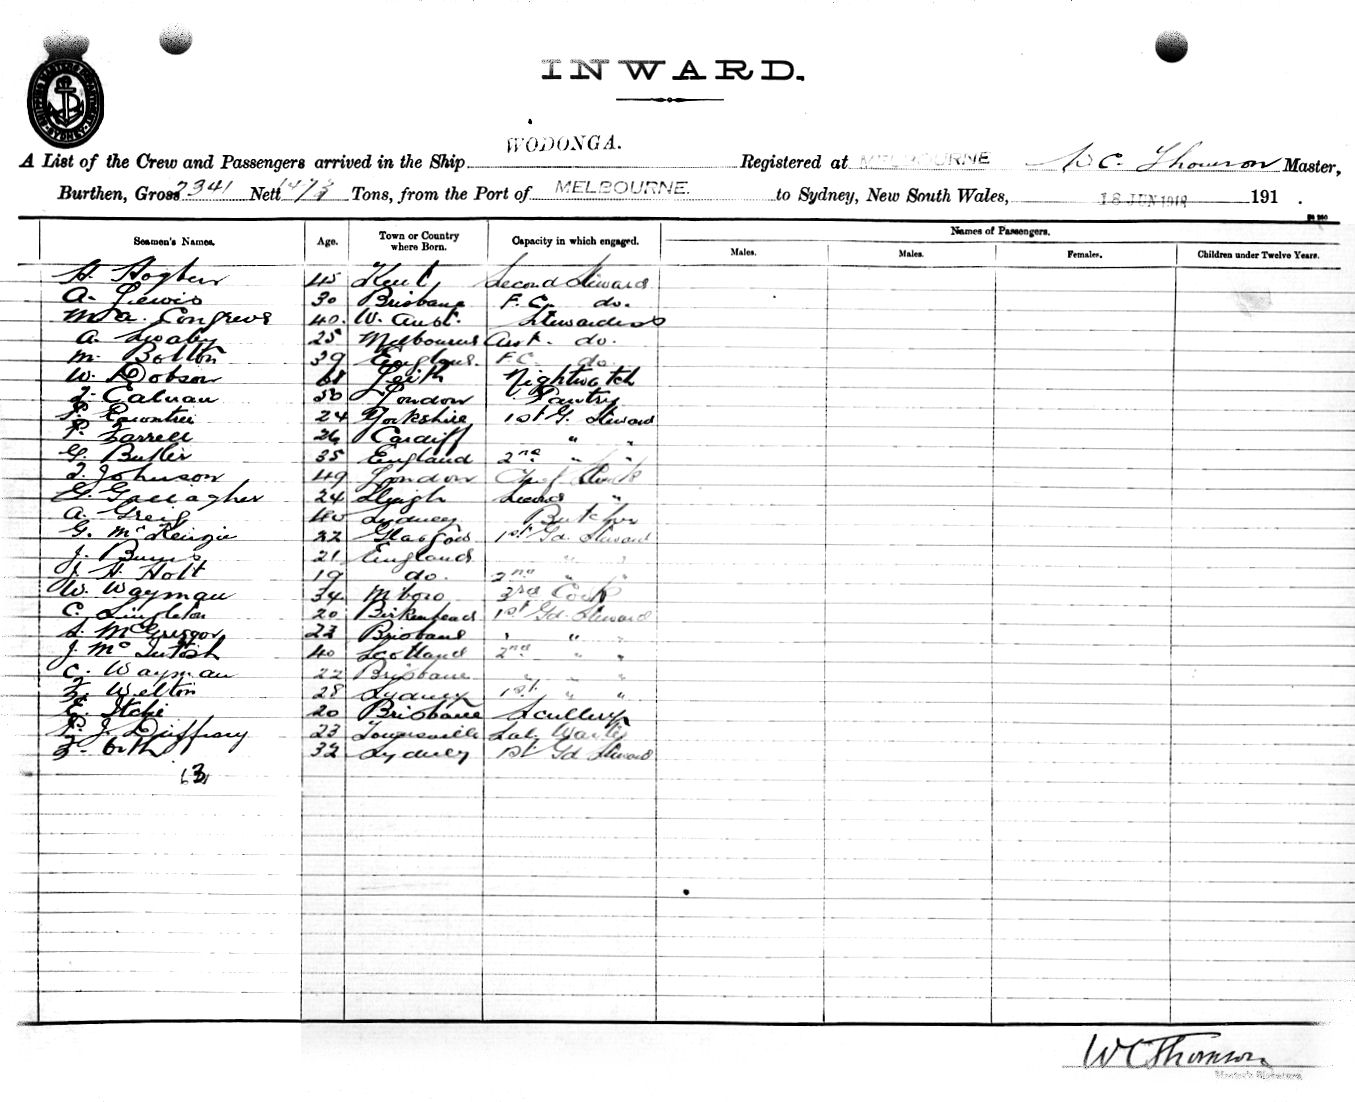 INWARD.
WODONGA.
A List of the Crew and Passengers arrived in the Ship Registered at MELBOURNE W C. Thomson Master,
Burthen, Gross 2341 Nett Tons, from the Port of MELBOURNE. to Sydney, New South Wales, 18 JUN 191 .
Names of Passengers.
Seamen's Names. Age. Town or Country where Born. Capacity in which engaged. Males. Males. Females. Children under Twelve Years.
H. 45 Kent Second Steward
A. Lewis 30 Brisbane F.C. do.
M A. Congreve 40. W. Aust. Stewardess
A. 25 Melbourne Asst. do.
M. Bolton 39 England. F.C. do.
W. Dobson 68 Leith Nightwatch
London Pantry
24 Yorkshire 1st G. Steward
P. Farrell 26 Cardiff " "
G. Butler 35 England 2nd " "
J. Johnson 49 London Chief Cook
G. Gallagher 24 Leigh Second "
A. Greig 40 Sydney Butcher
G. McKenzie 22 Glasgow 1st Gd. Steward
J. Burns 21 England " "
J. H. Holt 19 do. 2nd " "
W. Wayman 34 M'boro 3rd Cook
C. Singleton 20 Birkenhead 1st Gd. Steward
S. McGregor 23 Brisbane " " "
J. McIntosh 40 Scotland 2nd " "
C. Wayman 22 Brisbane " " "
F. Welton 28 Sydney 1st " "
E. 20 Brisbane Scullery
P. J. 23 Townsville
F. 32 Sydney 1st Gd Steward
W C Thomson
Master's Signature